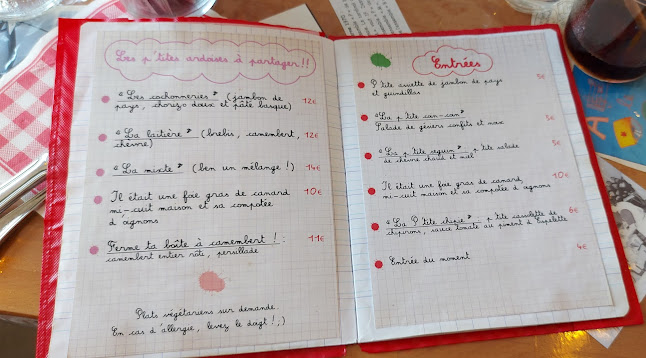 Les p'tites ardoises à partager!!
« Les cochonneries » (jambon de
pays, chorizo doux et pâté basque) 12€
« La laitière » (brebis, camembert,
chèvre) 12€
« La mixte » (ben un mélange !) 14€
Il était une foie gras de canard 10€
mi-cuit maison et sa compotée
d'oignons
Ferme ta boîte à camembert ! : 11€
camembert entier rôti, persillade
Plats végétariens sur demande.
En cas d'allergie, levez le doigt ! ;)
Entrées
P'tite assiette de jambon de pays 5€
et guindillas
« La p'tite can-can » 5€
Salade de gésiers confits et noix
« Les p'tits seguin » : p'tite salade 5€
de chèvre chaud et miel
Il était une foie gras de canard 10€
mi-cuit maison et sa compotée d'oignons
« La P'tite chipie » : p'tite cassolette de 6€
chipirons, sauce tomate au piment d'Espelette
Entrée du moment 4€